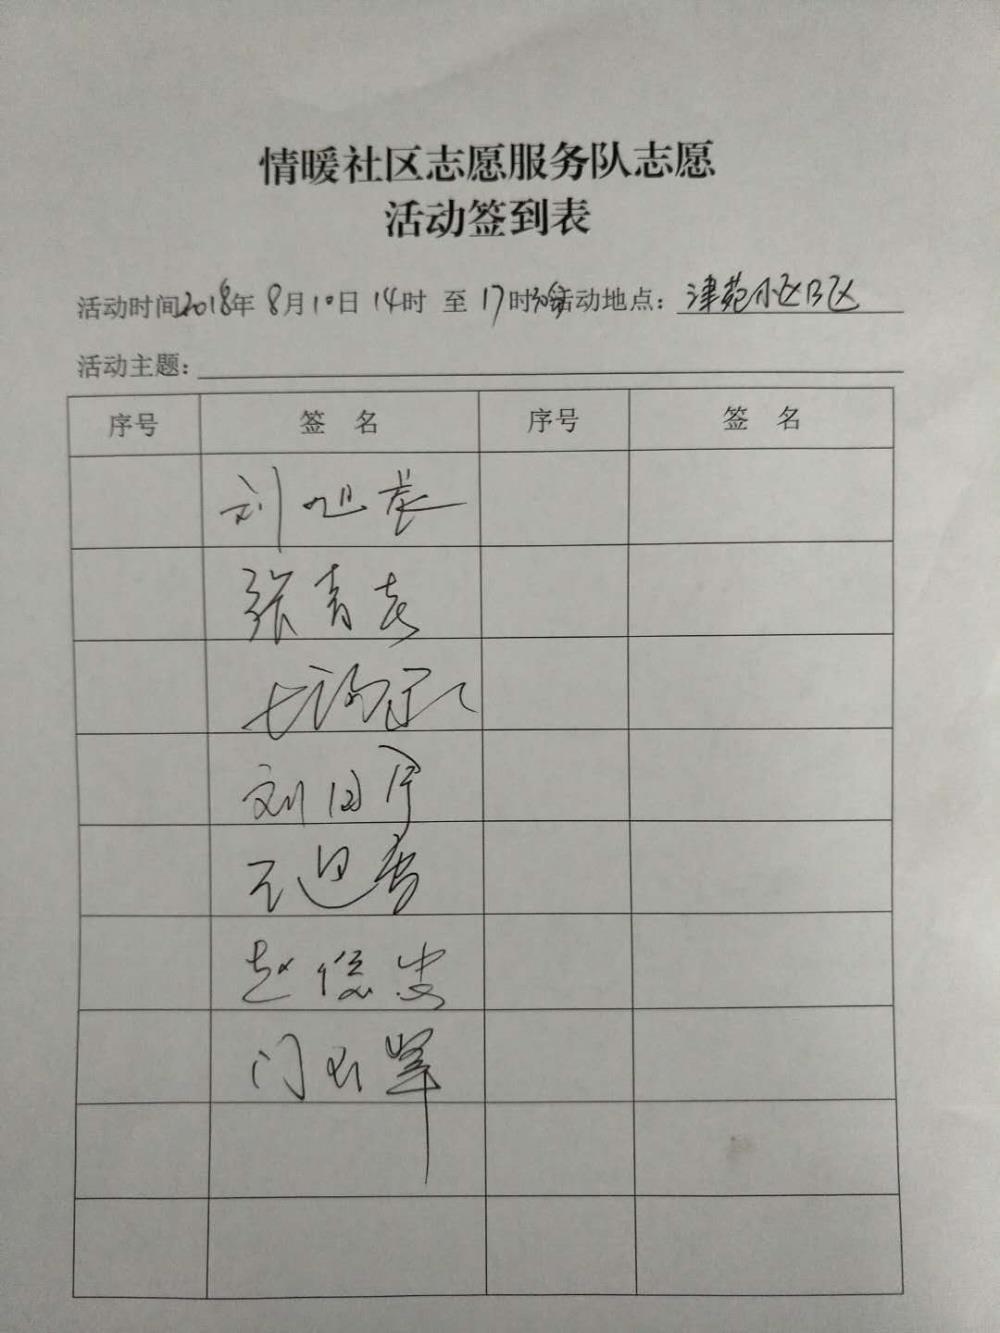 情暖社区志愿服务队志愿
活动签到表
活动时间2018年 8月10日 14时 至 17时30分活动地点：津苑小区B区
活动主题：
序号 签 名 序号 签 名
刘旭辰
张青
刘国宇
王迎春
赵俊忠
门